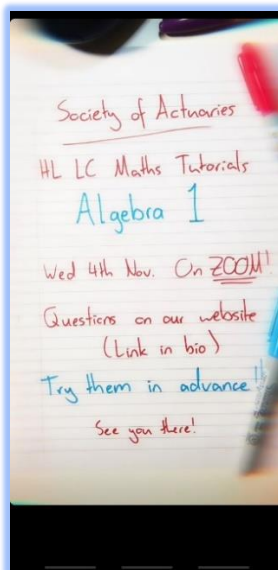 Society of Actuaries
HL LC Maths Tutorials
Algebra 1
Wed 4th Nov. On ZOOM!
Questions on our website
(Link in bio)
Try them in advance!!
See you there!